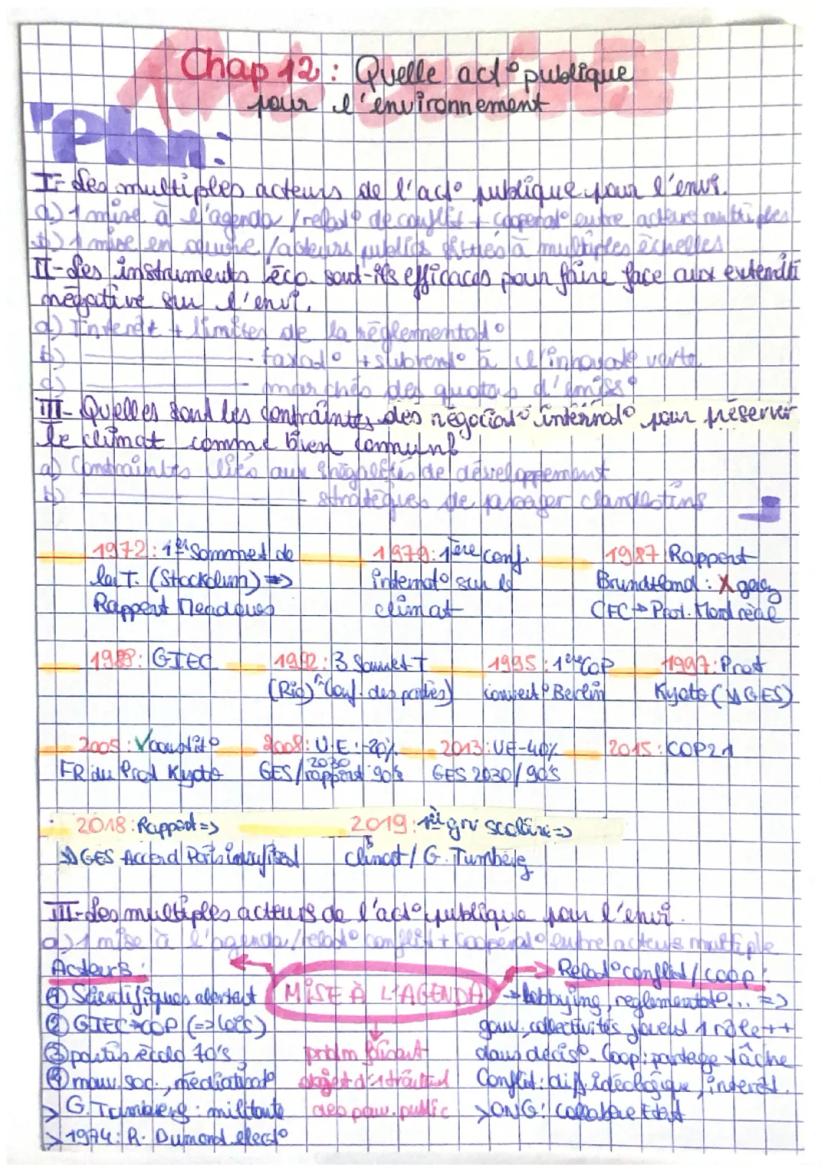 Chap 12 : Quelle act° publique
pour l'environnement
Plan :
I- Les multiples acteurs de l'act° publique pour l'envi.
a) 1 mise à l'agenda / relat° de conflit + coopérat° entre acteurs multiples
b) 1 mise en œuvre / acteurs publics à multiples échelles
II- Les instruments éco. sont-ils efficaces pour faire face aux
négative sur l'envi.
a) Intérêt + limites de la réglementat°
b) ———— taxat° + à l'innovat° verte
c) ———— marchés des quotas d'émiss°
III- Quelles sont les contraintes des négociat° internat° pour préserver
le climat comme bien commun
a) Contraintes liés aux de développement
b) ———— stratégies de passager clandestins
1972 : 1er Sommet de 1979 : 1ère conf. 1987 : Rapport
la T. (Stockolm) => internat° sur le Brundtland : X gaz
Rapport Meadows climat CFC → Prot. Montréal
1988 : GIEC 1992 : 3 Sommet T 1995 : 1ère COP 1997 : Prot
(Rio) Conf. des parties) Berlin Kyoto (↘ GES)
2005 : 2008 : U.E : -20% 2013 : UE -40% 2015 : COP21
du Prot Kyoto GES / 2030 rapport 90's GES 2030 / 90's
2018 : Rapport => 2019 : 1ère grv scolaire =>
↘ GES Accord Paris climat / G. Tumberg
III- Les multiples acteurs de l'act° publique pour l'envi.
a) 1 mise à l'agenda / relat° conflit + coopérat° entre acteurs multiple
Acteurs : Relat° conflit / coop :
① Scientifiques alertent MISE À L'AGENDA → lobbying, reglementat°... =>
② GIEC → COP (=> lois) gouv, collectivités jouent 1 rôle ++
③ partis écolo 70's, problm dans décis°. Coop : partage tâche
④ mouv. soc., médiatisat° objet d' Conflit : dif idéologique, intérêt.
> G. Tumberg : militante des pouv. public > ONG : Etat
> 1974 : R. Dumond élect°